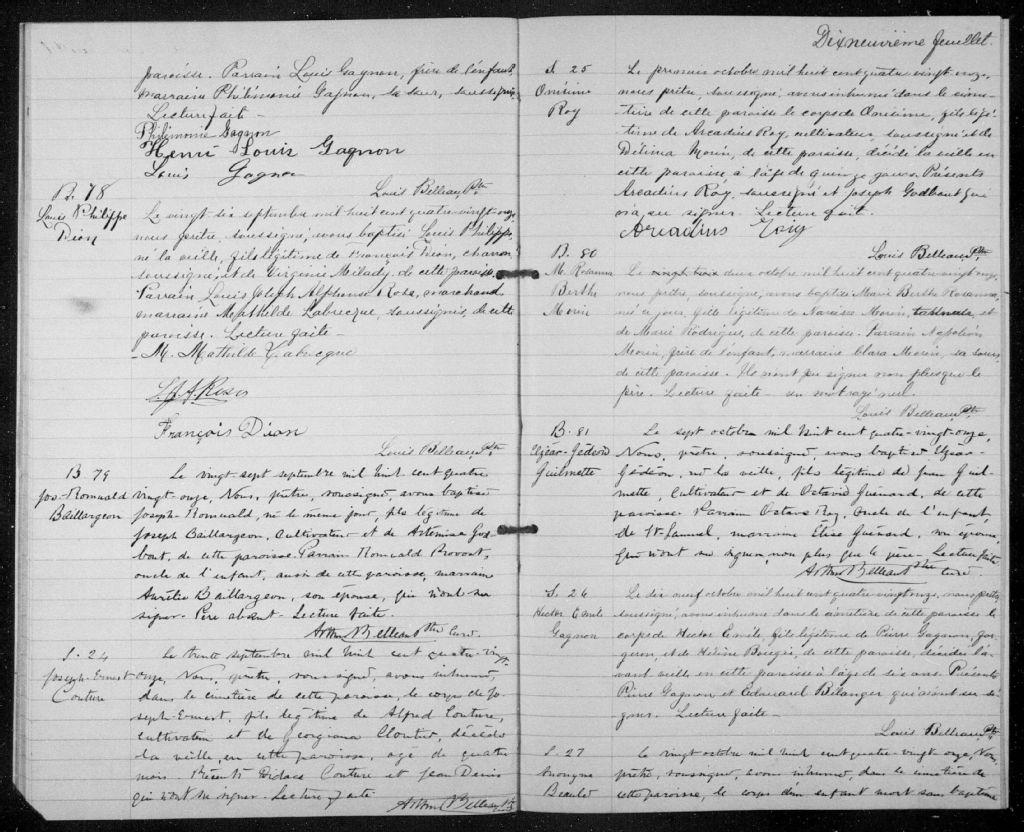 paroisse. Parrain Louis Gagnon, frère de l'enfant,
marraine Philémonie Gagnon, sa sœur, soussignés.
Lecture fait -
Philémonie Gagnon
Henri Louis Gagnon
Louis Gagnon
Louis Belleau, Ptre
B. 78
Louis Philippe
Dion
Le vingt six septembre mil huit cent quatre-vingt-onze,
nous prêtre, soussigné, avons baptisé Louis Philippe,
né la veille, fils légitime de François Dion, charron
soussigné, et de Virginie Milady, de cette paroisse.
Parrain Louis Joseph Alphonse Rosa, marchand,
marraine M. Mathilde Labrecque, soussignés, de cette
paroisse. Lecture faite -
- M. Mathilde Labrecque
L. J. A. Rosa
François Dion
Louis Belleau, Ptre
B. 79
Jos-Romuald
Baillargeon
Le vingt-sept septembre mil huit cent quatre
vingt-onze, Nous, prêtre, soussigné, avons baptisé
Joseph-Romuald, né le même jour, fils légitime de
Joseph Baillargeon, cultivateur et de Artémise God-
bout, de cette paroisse. Parrain Romuald Provost,
oncle de l'enfant, aussi de cette paroisse, marraine
Aurélie Baillargeon, son épouse, qui n'ont su
signer. Père absent - Lecture faite
Arthur Belleau Ptre Curé.
S. 24
Joseph-Ernest
Couture
Le trente septembre mil huit cent quatre-vingt-
onze, Nous, prêtre, soussigné, avons inhumé,
dans le cimetière de cette paroisse, le corps de Jo-
seph-Ernest, fils légitime de Alfred Couture,
cultivateur et de Georgiana Cloutier, décédé
la veille, en cette paroisse, agé de quatre
mois. Présents Couture et Jean Denis
qui n'ont su signer - Lecture faite
Arthur Belleau Ptre
Dixneuvième feuillet.
S. 25
Onésime
Roy
Le premier octobre mil huit cent quatre vingt onze,
nous prêtre, soussigné, avons inhumé dans le cime-
tière de cette paroisse le corps de Onésime, fils légi-
time de Arcadius Roy, cultivateur, soussigné et de
Délima Morin, de cette paroisse, décédé la veille en
cette paroisse à l'âge de quinze jours. Présents
Arcadius Roy, soussigné et Joseph Godbout qui
n'a su signer. Lecture fait.
Arcadius Roy
Louis Belleau, Ptre
B. 80
M. Rosanna
Berthe
Morin
Le vingt trois deux octobre mil huit cent quatre vingt onze,
nous prêtre, soussigné, avons baptisé Marie Berthe Rosanna,
née ce jour, fille légitime de Narcisse Morin, et
de Marie Rodrigue, de cette paroisse. Parrain Napoléon
Morin, frère de l'enfant, marraine Clara Morin, sa sœur,
de cette paroisse. Ils n'ont pu signer non plus que le
père. Lecture faite - un mot rayé nul.
Louis Belleau Ptre
B. 81
Elzéar-Gédéon
Guilmette
Le sept octobre mil huit cent quatre-vingt-onze,
Nous, prêtre, soussigné, avons baptisé Elzéar-
Gédéon, né la veille, fils légitime de Jean Guil-
mette, Cultivateur et de Octavie Guénard, de cette
paroisse. Parrain Octave Roy, oncle de l'enfant,
de St-Samuel, marraine Élise Guénard, son épouse,
qui n'ont su signer, non plus que le père - Lecture faite
Arthur Belleau Ptre Curé.
S. 26
Hector Émile
Gagnon
Le dix neuf octobre mil huit cent quatre vingt onze, nous prêtre
soussigné, avons inhumé dans le cimetière de cette paroisse le
corps de Hector Émile, fils légitime de Pierre Gagnon, for-
geron, et de Hélène de cette paroisse, décédé l'a-
vant veille en cette paroisse à l'âge de dix ans. Présents
Pierre Gagnon et Edouard Bélanger qui n'ont su si-
gner. Lecture faite -
Louis Belleau Ptre
S. 27
Anonyme
Beaulé
Le vingt octobre mil huit cent quatre-vingt-onze, Nous,
prêtre, soussigné, avons inhumé, dans le cimetière de
cette paroisse, le corps d'un enfant mort sans baptême